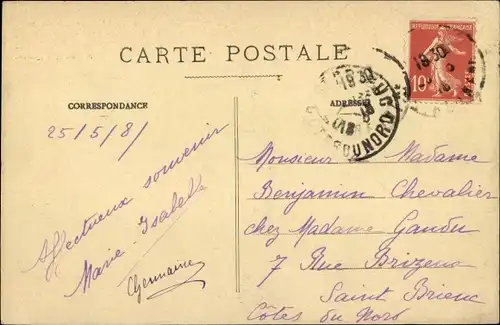 CARTE POSTALE
REPUBLIQUE FRANÇAISE
10
18 30
CORRESPONDANCE
ADRESSE
25/5/8/
Affectueux souvenir
Marie-Isabelle
Germaine
Monsieur Madame
Benjamin Chevalier
chez Madame Gandu
7 Rue Brizeux
Saint Brieuc
Côtes du Nord